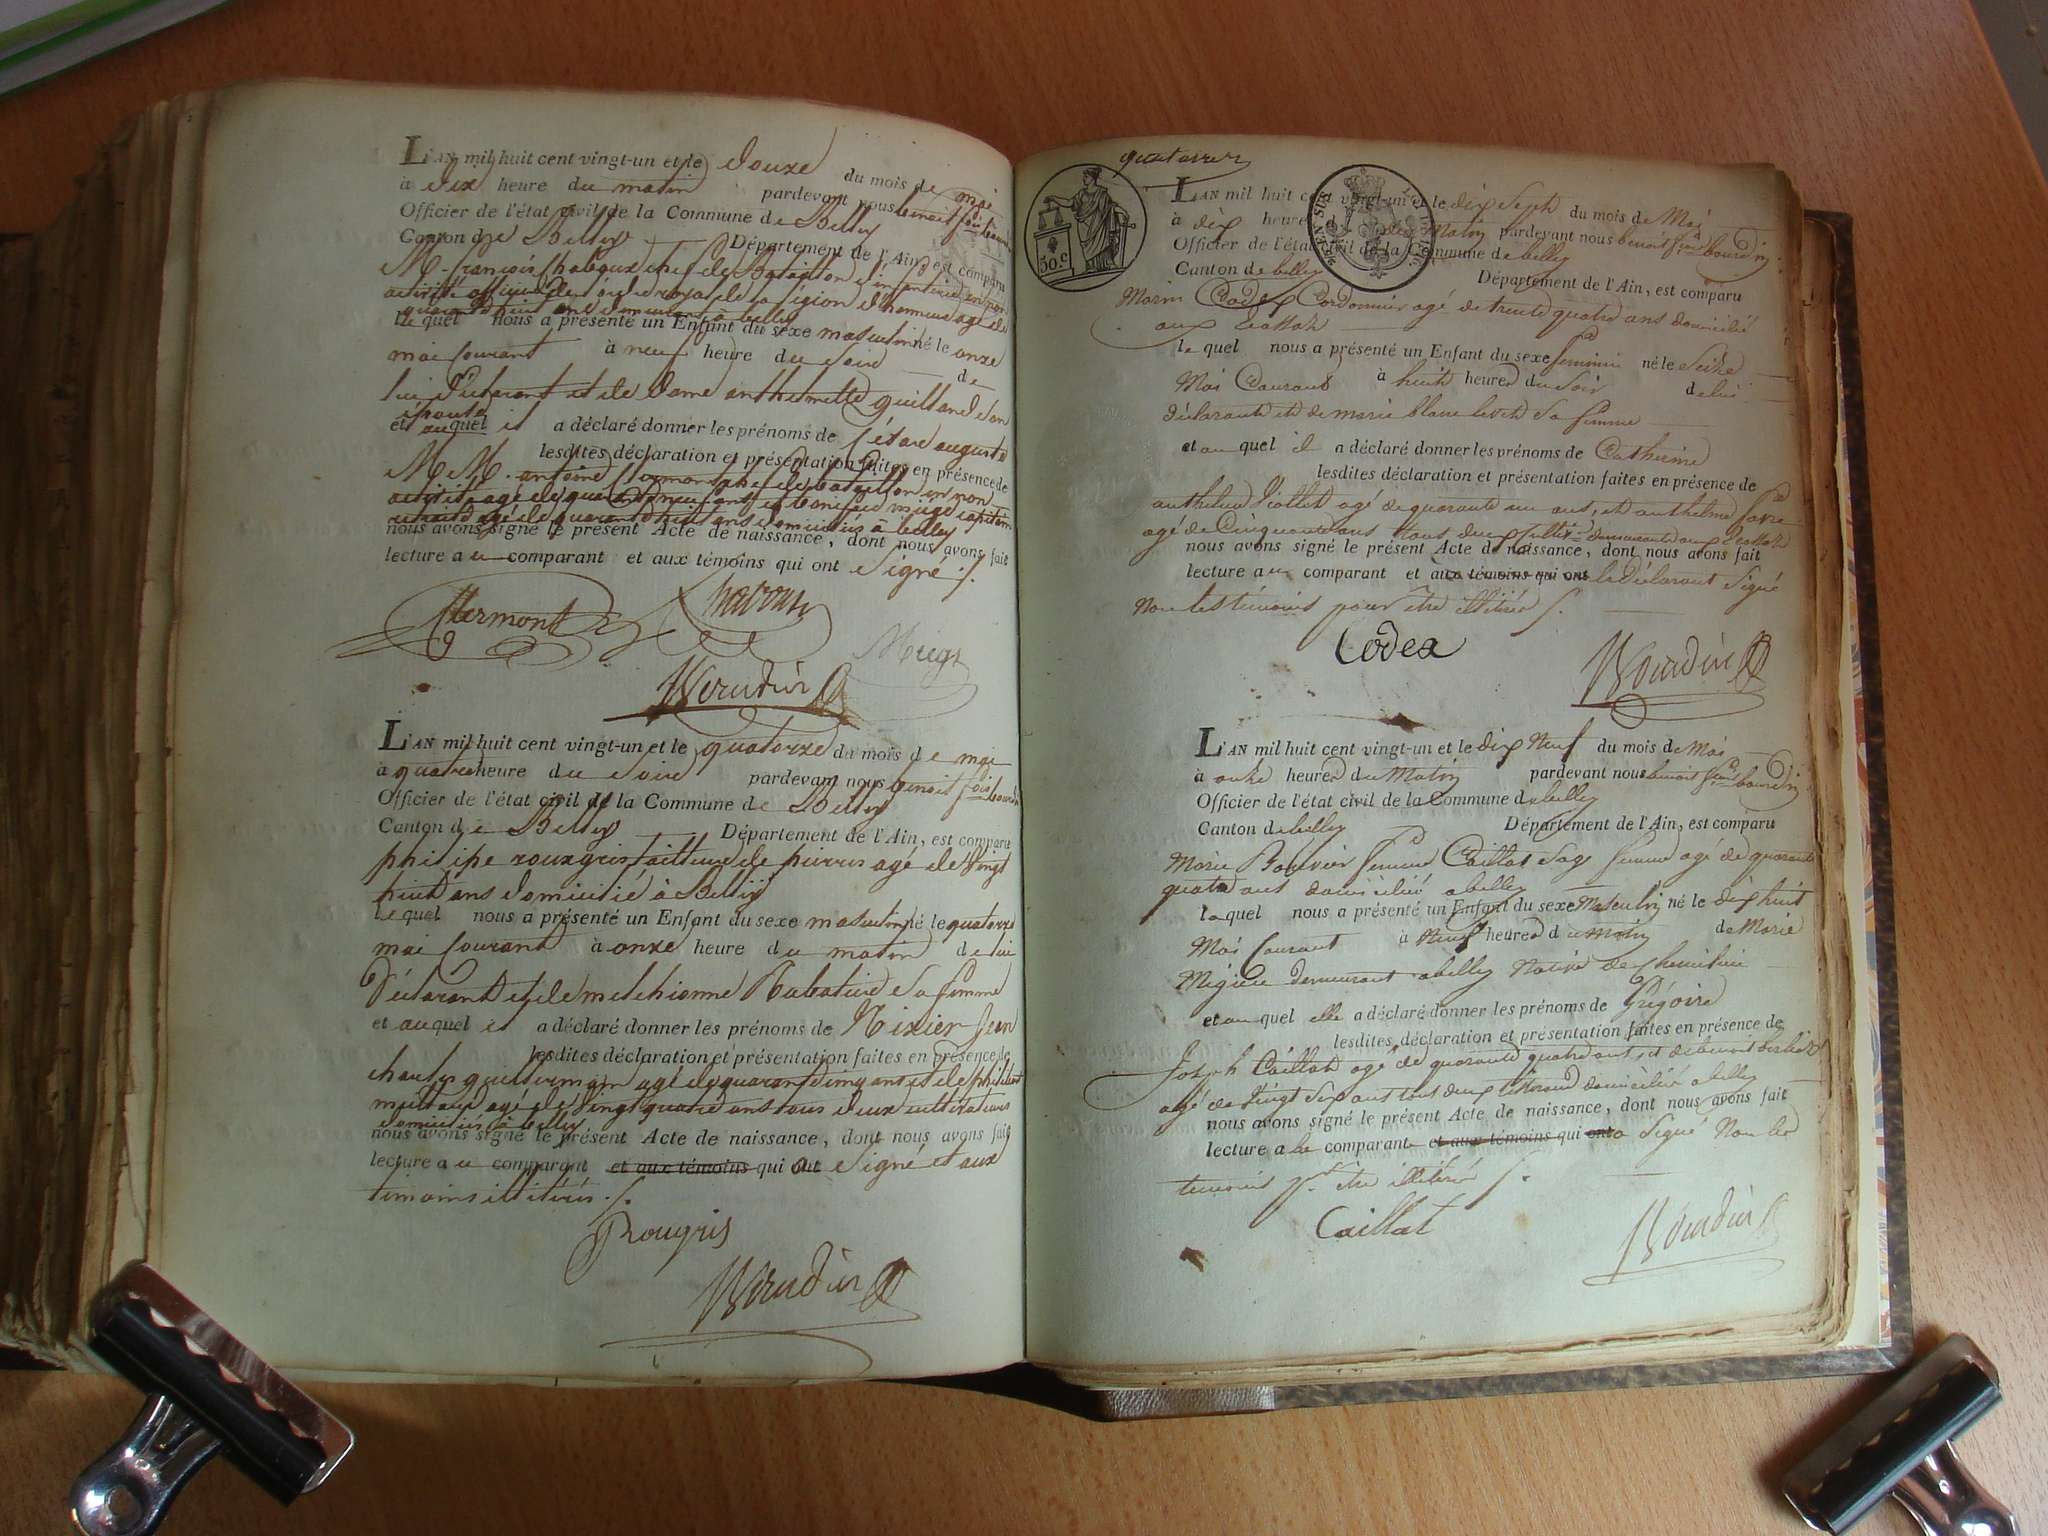 L'AN mil huit cent vingt-un et le douze du mois de mai
à dix heure du matin pardevant nous benoit fois bourdin
Officier de l'état civil de la Commune de Belley
Canton de Belley Département de l'Ain, est comparu
M. françois Chaboux chef de Bataillon d'infanterie en non
activité officier de l'ordre royal de la légion d'honneur agé de
quarante huit ans domicilié à belley
le quel nous a présenté un Enfant du sexe masculin né le onze
mai courant à neuf heure du soir de
lui déclarant et de dame anthelmette guilland son
épouse
et auquel il a déclaré donner les prénoms de César auguste
lesdites déclaration et présentation faites en présence de
M M. antoine Clermont chef de bataillon en non
activité agé de quarante neuf ans et boniface miege capitaine
retraité agé de quarante huit ans domiciliés à belley
nous avons signé le présent Acte de naissance, dont nous avons fait
lecture au comparant et aux témoins qui ont signé ./.
Clermont Chaboux
Miege
Bourdin
L'AN mil huit cent vingt-un et le quatorze du mois de mai
à quatre heure du soir pardevant nous benoit fois bourdin
Officier de l'état civil de la Commune de Belley
Canton de Belley Département de l'Ain, est comparu
philipe rouxgris tailleur de pierres agé de vingt
huit ans domicilié à Belley
le quel nous a présenté un Enfant du sexe masculin né le quatorze
mai courant à onze heure du matin de lui
Déclarant et de melchionne Rabatine sa femme
et auquel il a déclaré donner les prénoms de Nixier Jean
lesdites déclaration et présentation faites en présence de
charles guillermin agé de quarante cinq ans et de philibert
agé de vingt quatre ans tous deux cultivateurs
domiciliés à belley
nous avons signé le présent Acte de naissance, dont nous avons fait
lecture au comparant et aux témoins qui ont a signé et aux
témoins illitérés ./.
Rougris
Bourdin
quatorze
50.c
L'AN mil huit cent vingt-un et le dix Sept du mois de Mai
à dix heure du Matin pardevant nous benoit fcois bourdin
Officier de l'état civil de la Commune de belley
Canton de belley Département de l'Ain, est comparu
Marin Codex Cordonnier agé de trente quatre ans domicilié
aux
le quel nous a présenté un Enfant du sexe feminin né le Seize
Mai Courant à huit heures du Soir de lui
déclarant et de marie blanc sa femme
et au quel il a déclaré donner les prénoms de Catherine
lesdites déclaration et présentation faites en présence de
anthelme Viollet agé de quarante un ans, et anthelme favre
agé de Cinquante ans tous deux demeurant aux
nous avons signé le présent Acte de naissance, dont nous avons fait
lecture au comparant et aux témoins qui ont le déclarant Signé
Non les témoins pour être illitérés /.
Codex
Bourdin
L'AN mil huit cent vingt-un et le dix Neuf du mois de Mai
à onze heures du Matin pardevant nous benoit fcois bourdin
Officier de l'état civil de la Commune de belley
Canton de belley Département de l'Ain, est comparu
Marie Bouvier femme Caillat Sage femme agé de quarante
quatre ans domicilié a belley
laquel nous a présenté un Enfant du sexe Masculin né le dix huit
Mai Courant à Neuf heures du Matin de Marie
Migieu demeurant a belley Native de
et au quel elle a déclaré donner les prénoms de Grégoire
lesdites déclaration et présentation faites en présence de
Joseph Caillat agé de quarante quatre ans, et de benoit
agé de vingt Six ans tout deux domicilié a belley
nous avons signé le présent Acte de naissance, dont nous avons fait
lecture a la comparante et aux témoins qui ont a Signé Non les
temoins pr. être illitérés /.
Caillat
Bourdin